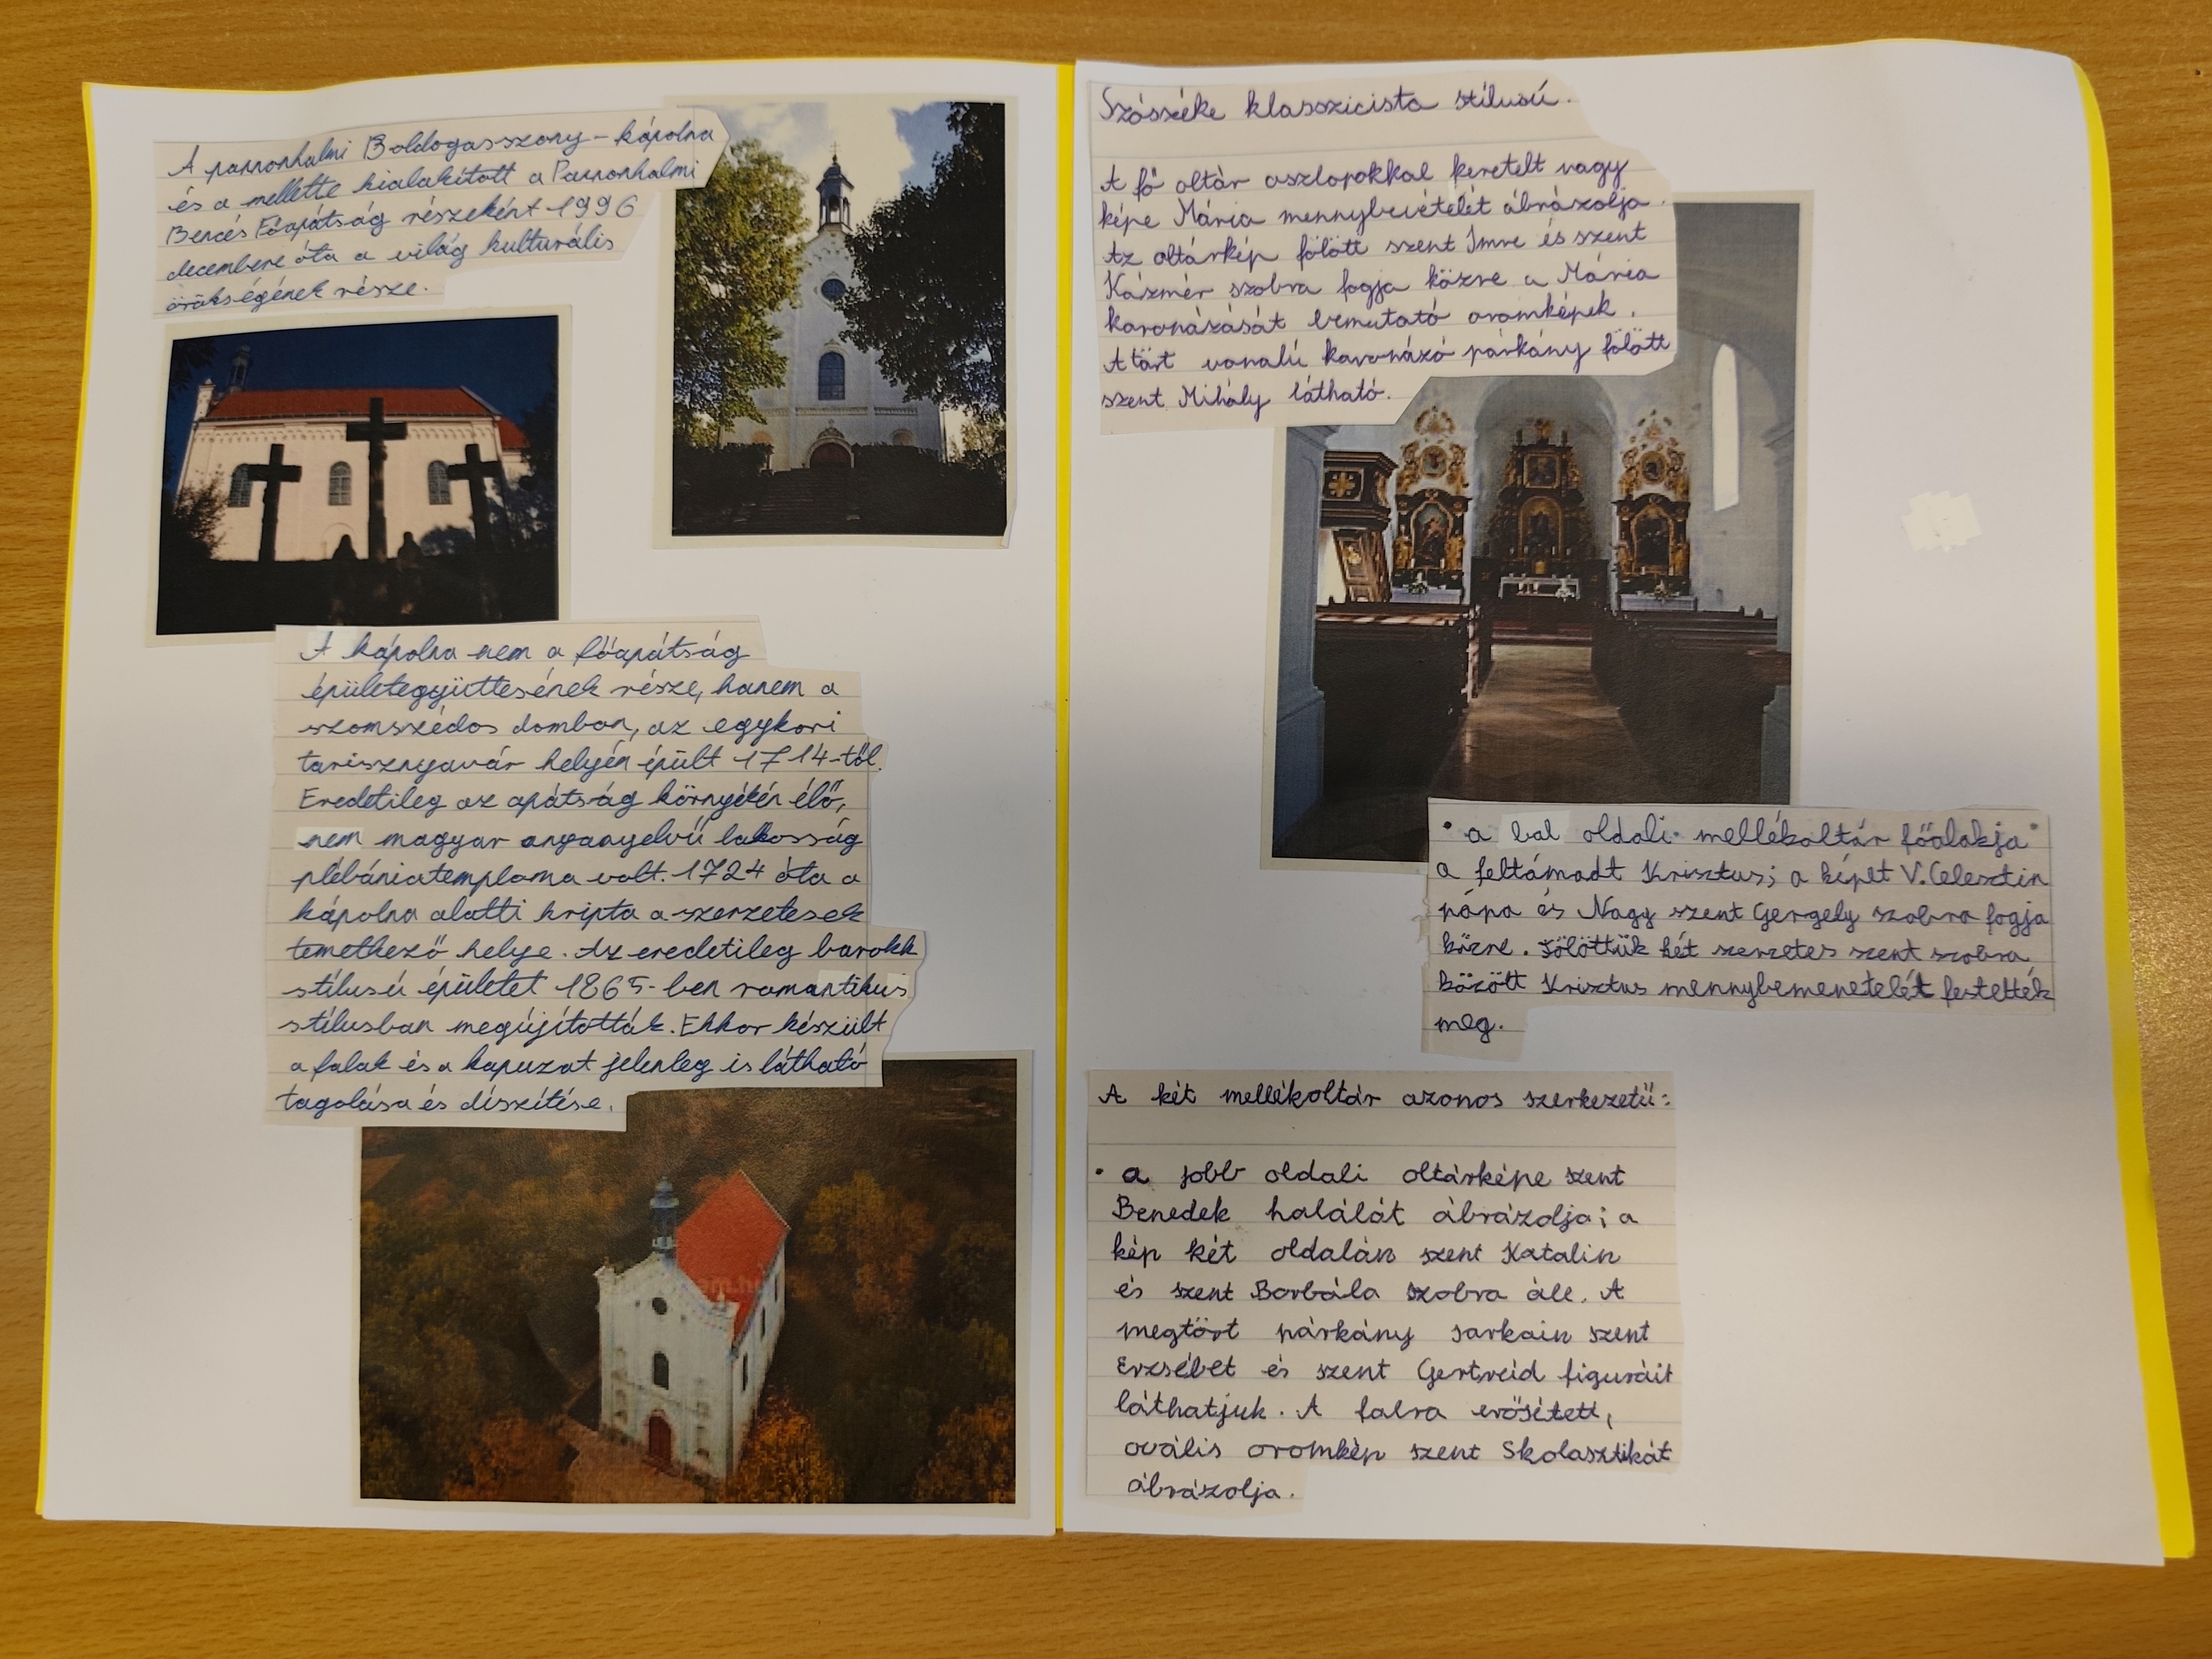 A pannonhalmi Boldogasszony-kápolna
és a mellette kialakított a Pannonhalmi
Bencés Főapátság részeként 1996
decembere óta a világ kulturális
örökségének része.
A kápolna nem a főapátság
épületegyüttesének része, hanem a
szomszédos dombon, az egykori
tarisznyavár helyén épült 1714-től.
Eredetileg az apátság környékén élő,
nem magyar anyanyelvű lakosság
plébániatemploma volt. 1724 óta a
kápolna alatti kripta a szerzetesek
temetkező helye. Az eredetileg barokk
stílusú épületet 1865-ben romantikus
stílusban megújították. Ekkor készült
a falak és a kapuzat jelenleg is látható
tagolása és díszítése.
Szószéke klasszicista stílusú.
A fő oltár oszlopokkal keretelt nagy
képe Mária mennybevételét ábrázolja.
Az oltárkép fölött szent Imre és szent
Kázmér szobra fogja közre a Mária
koronázását bemutató oromképek.
A tört vonalú koronázó párkány fölött
szent Mihály látható.
• a bal oldali mellékoltár főalakja
a feltámadt Krisztus; a képet V. Celesztin
pápa és Nagy szent Gergely szobra fogja
közre. Fölöttük két szerzetes szent szobra
között Krisztus mennybemenetelét festették
meg.
A két mellékoltár azonos szerkezetű:
• a jobb oldali oltárképe szent
Benedek halálát ábrázolja; a
kép két oldalán szent Katalin
és szent Borbála szobra áll. A
megtört párkány sarkain szent
Erzsébet és szent Gertrúd figuráit
láthatjuk. A falra erősített,
ovális oromkép szent Skolasztikát
ábrázolja.